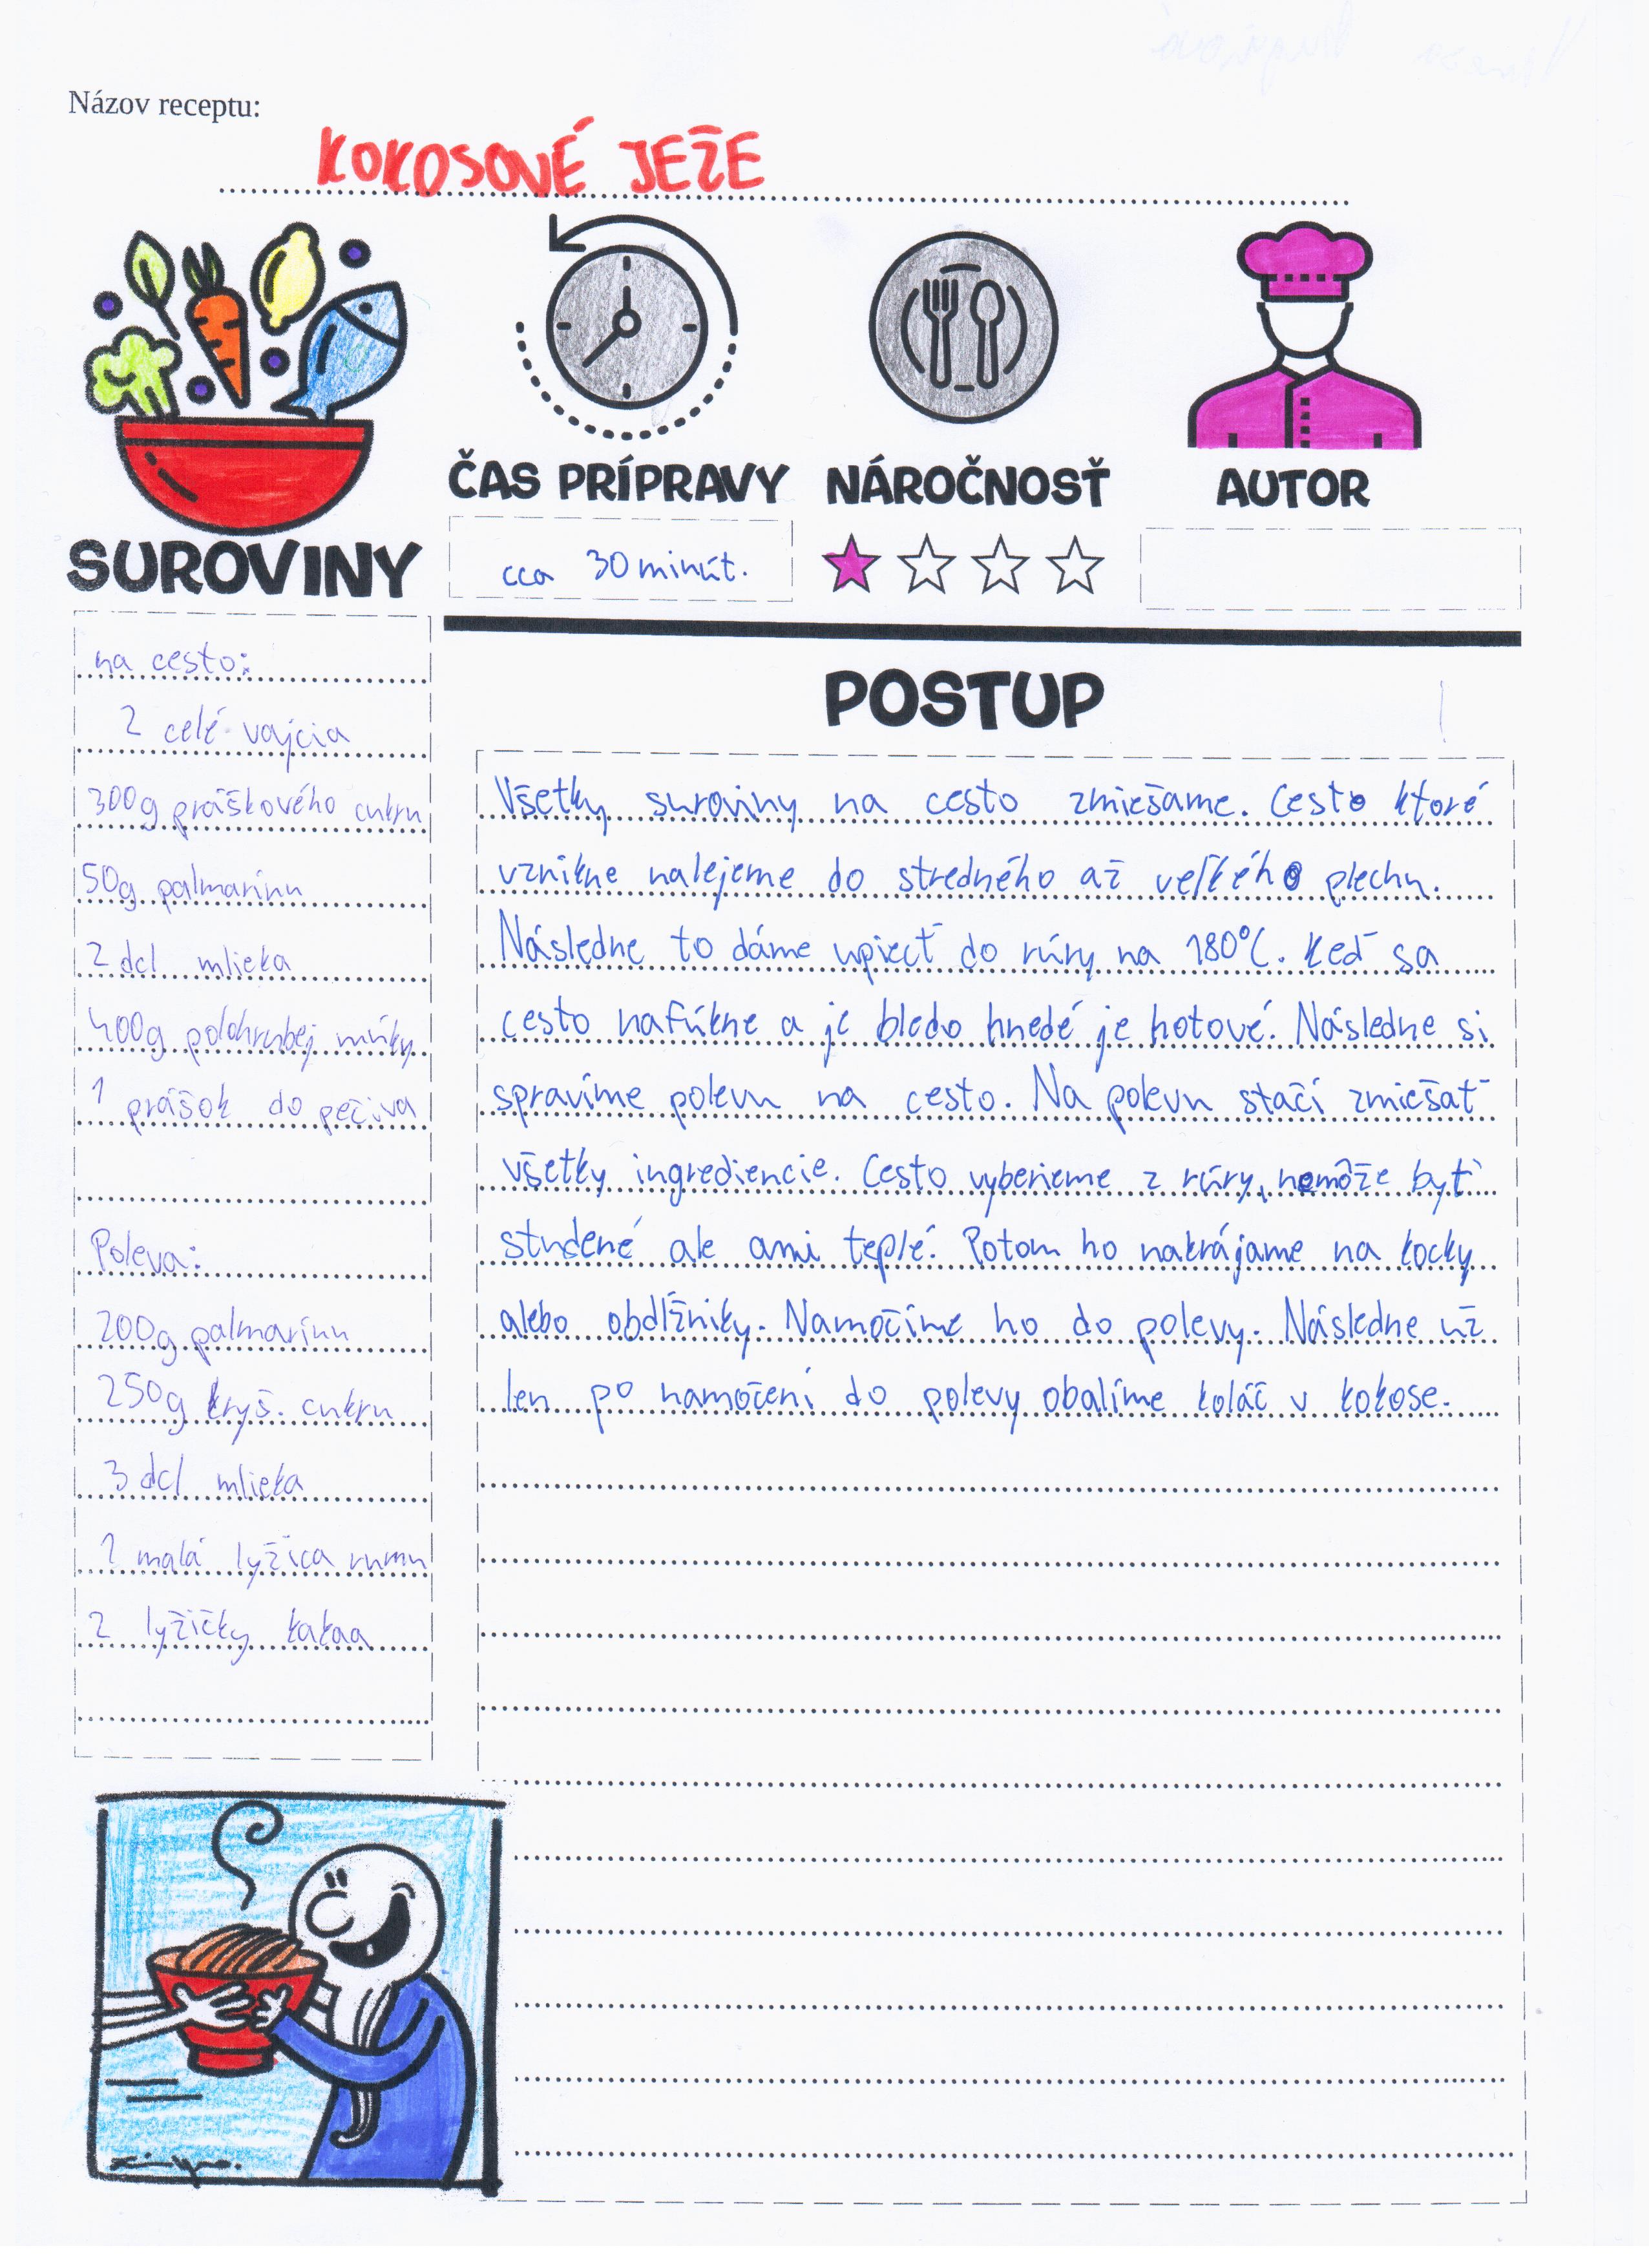 Názov receptu:
KOKOSOVÉ JEŽE
ČAS PRÍPRAVY
NÁROČNOSŤ
AUTOR
cca 30 minút.
SUROVINY
na cesto:
2 celé vajcia
300g práškového cukru
50g palmarínu
2 dcl mlieka
400g polohrubej múky
1 prášok do pečiva
Poleva:
200g palmarínu
250g kryš. cukru
3 dcl mlieka
1 malá lyžica rumu
2 lyžičky kakaa
POSTUP
Všetky suroviny na cesto zmiešame. Cesto ktoré
vznikne nalejeme do stredného až veľkého plechu.
Následne to dáme upiecť do rúry na 180°C. Keď sa
cesto nafúkne a je bledo hnedé je hotové. Následne si
spravíme polevu na cesto. Na polevu stačí zmiešať
všetky ingrediencie. Cesto vyberieme z rúry, nemôže byť
studené ale ani teplé. Potom ho nakrájame na kocky
alebo obdĺžniky. Namočíme ho do polevy. Následne už
len po namočení do polevy obalíme koláč v kokose.